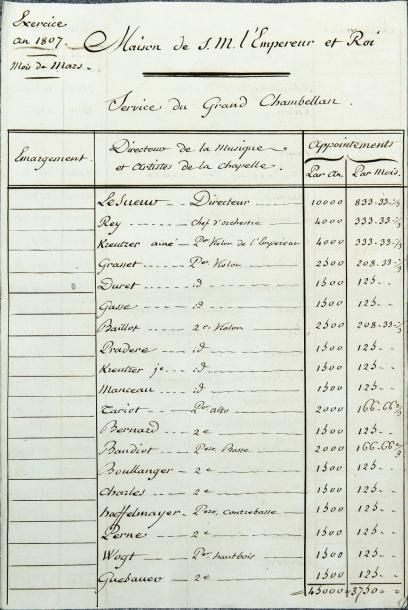 Exercice
an 1807.
Mois de Mars.
Maison de S. M. l'Empereur et Roi
Service du Grand Chambellan.
Emargement.
Directeur de la Musique
et Artistes de la chapelle.
Appointements
Par An. Par Mois.
LeSueur Directeur 10000 833-33-1/3
Rey chef d'orchestre 4000 333.33-1/3
Kreutzer ainé Per Violon de l'Empereur 4000 333.33-1/3
Grasset Per Violon 2500 208-33-1/3
Duret id 1500 125
Gasse id 1500 125
Baillot 2e Violon 2500 208-33-1/3
Pradere id 1500 125
Kreutzer je id 1500 125
Manceau id 1500 125
Tariot Per alto 2000 166-66-2/3
Bernard 2e 1500 125
Baudiot Pere Basse 2000 166-66-2/3
Boullanger 2e 1500 125
Charles 2e 1500 125
hoeffelmayer Pere contrebasse 1500 125
Perne 2e 1500 125
Wogt Per hautbois 1500 125
Guebauer 2e 1500 125
45000 3750